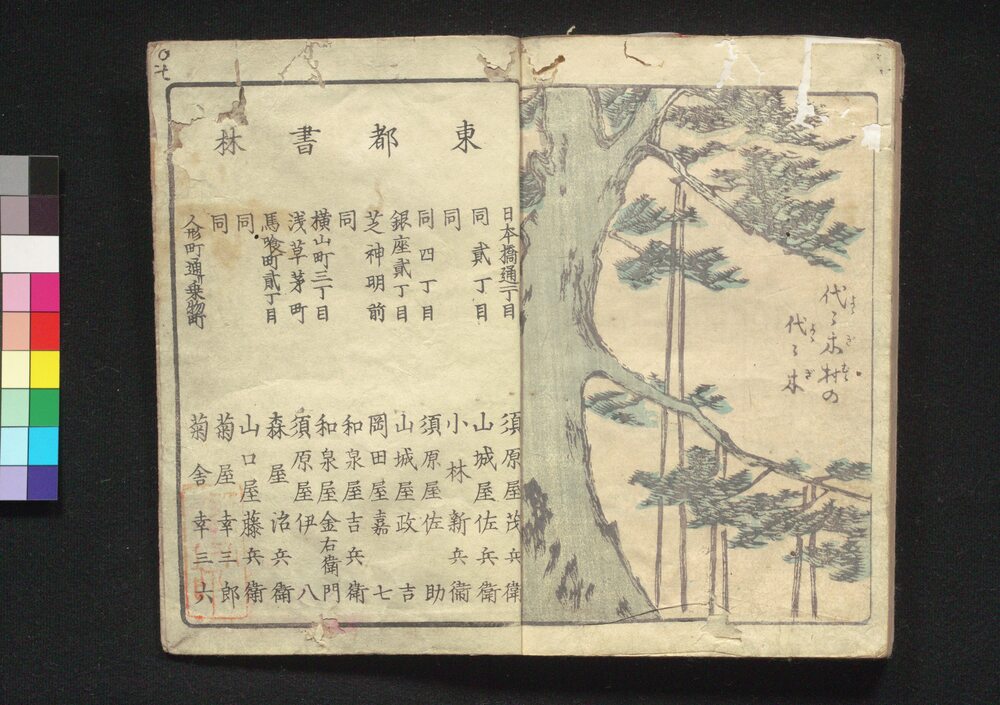 代々木村の
よゝぎむら
代々木
よゝぎ
東都書林
日本橋通一丁目 須原屋茂兵衛
同貳丁目 山城屋佐兵衛
同 小林新兵衛
同四丁目 須原屋佐助
銀座貳丁目 山城屋政吉
芝神明前 岡田屋嘉七
同 和泉屋吉兵衛
横山町三丁目 和泉屋金右衛門
浅草茅町 須原屋伊八
馬喰町貳丁目 森屋治兵衛
同 山口屋藤兵衛
同 菊屋幸三郎
人形町通乗物町 菊舎幸三六